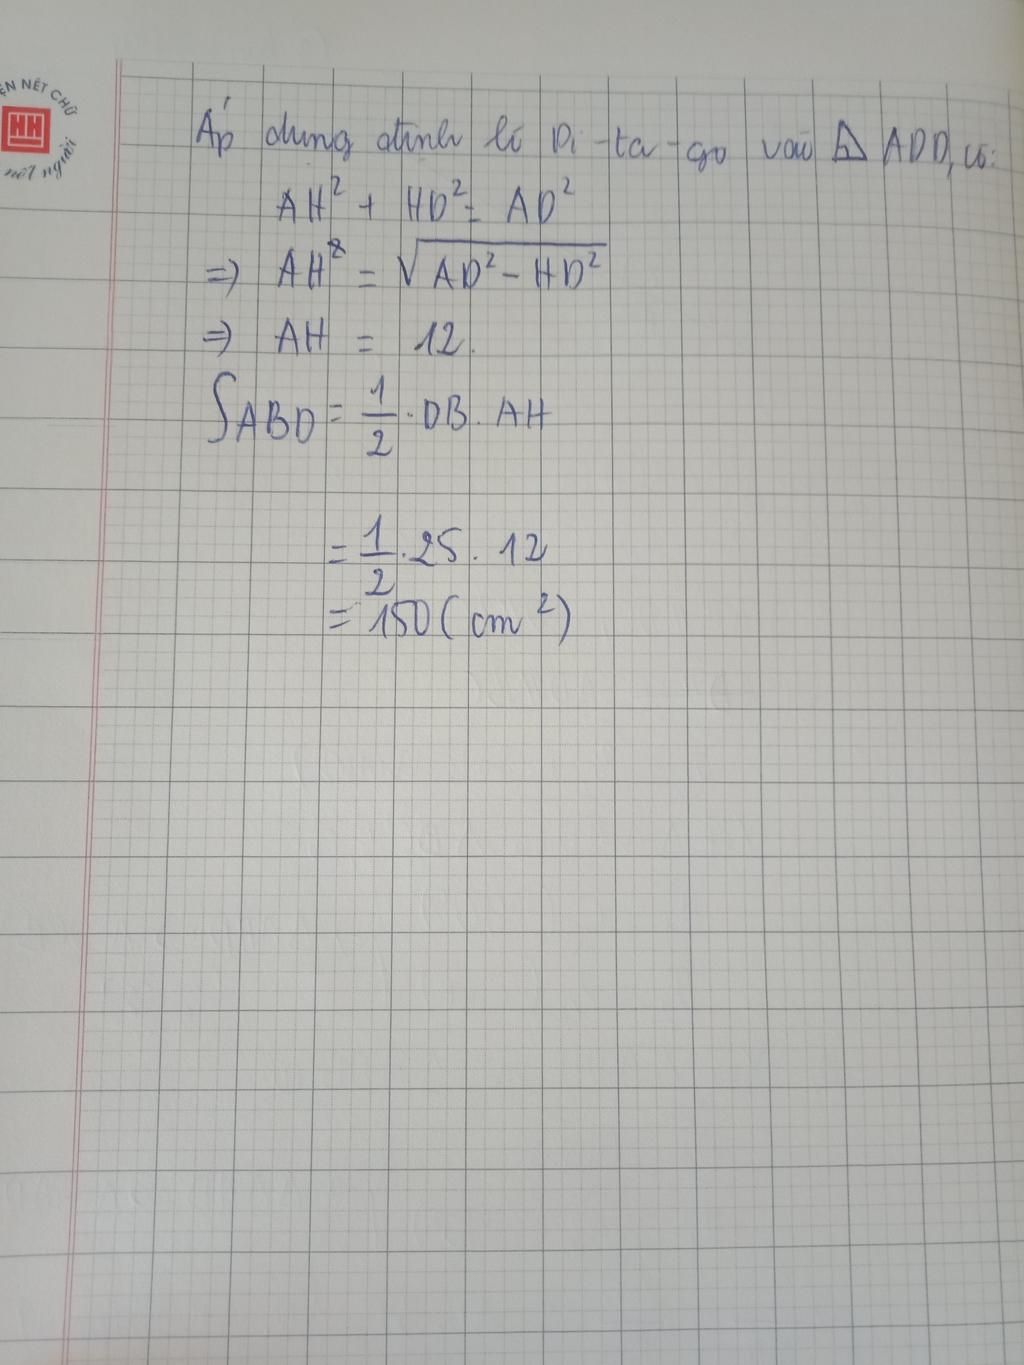 ỆN NẾT CHỮ
HH
nết người
Áp dụng định lí Pi-ta-go vào ADD, có:
AH² + HD² = AD²
=> AH = √AD² - HD²
=> AH = 12.
SABD = 1/2 . DB . AH
= 1/2 . 25 . 12
= 150 (cm²)